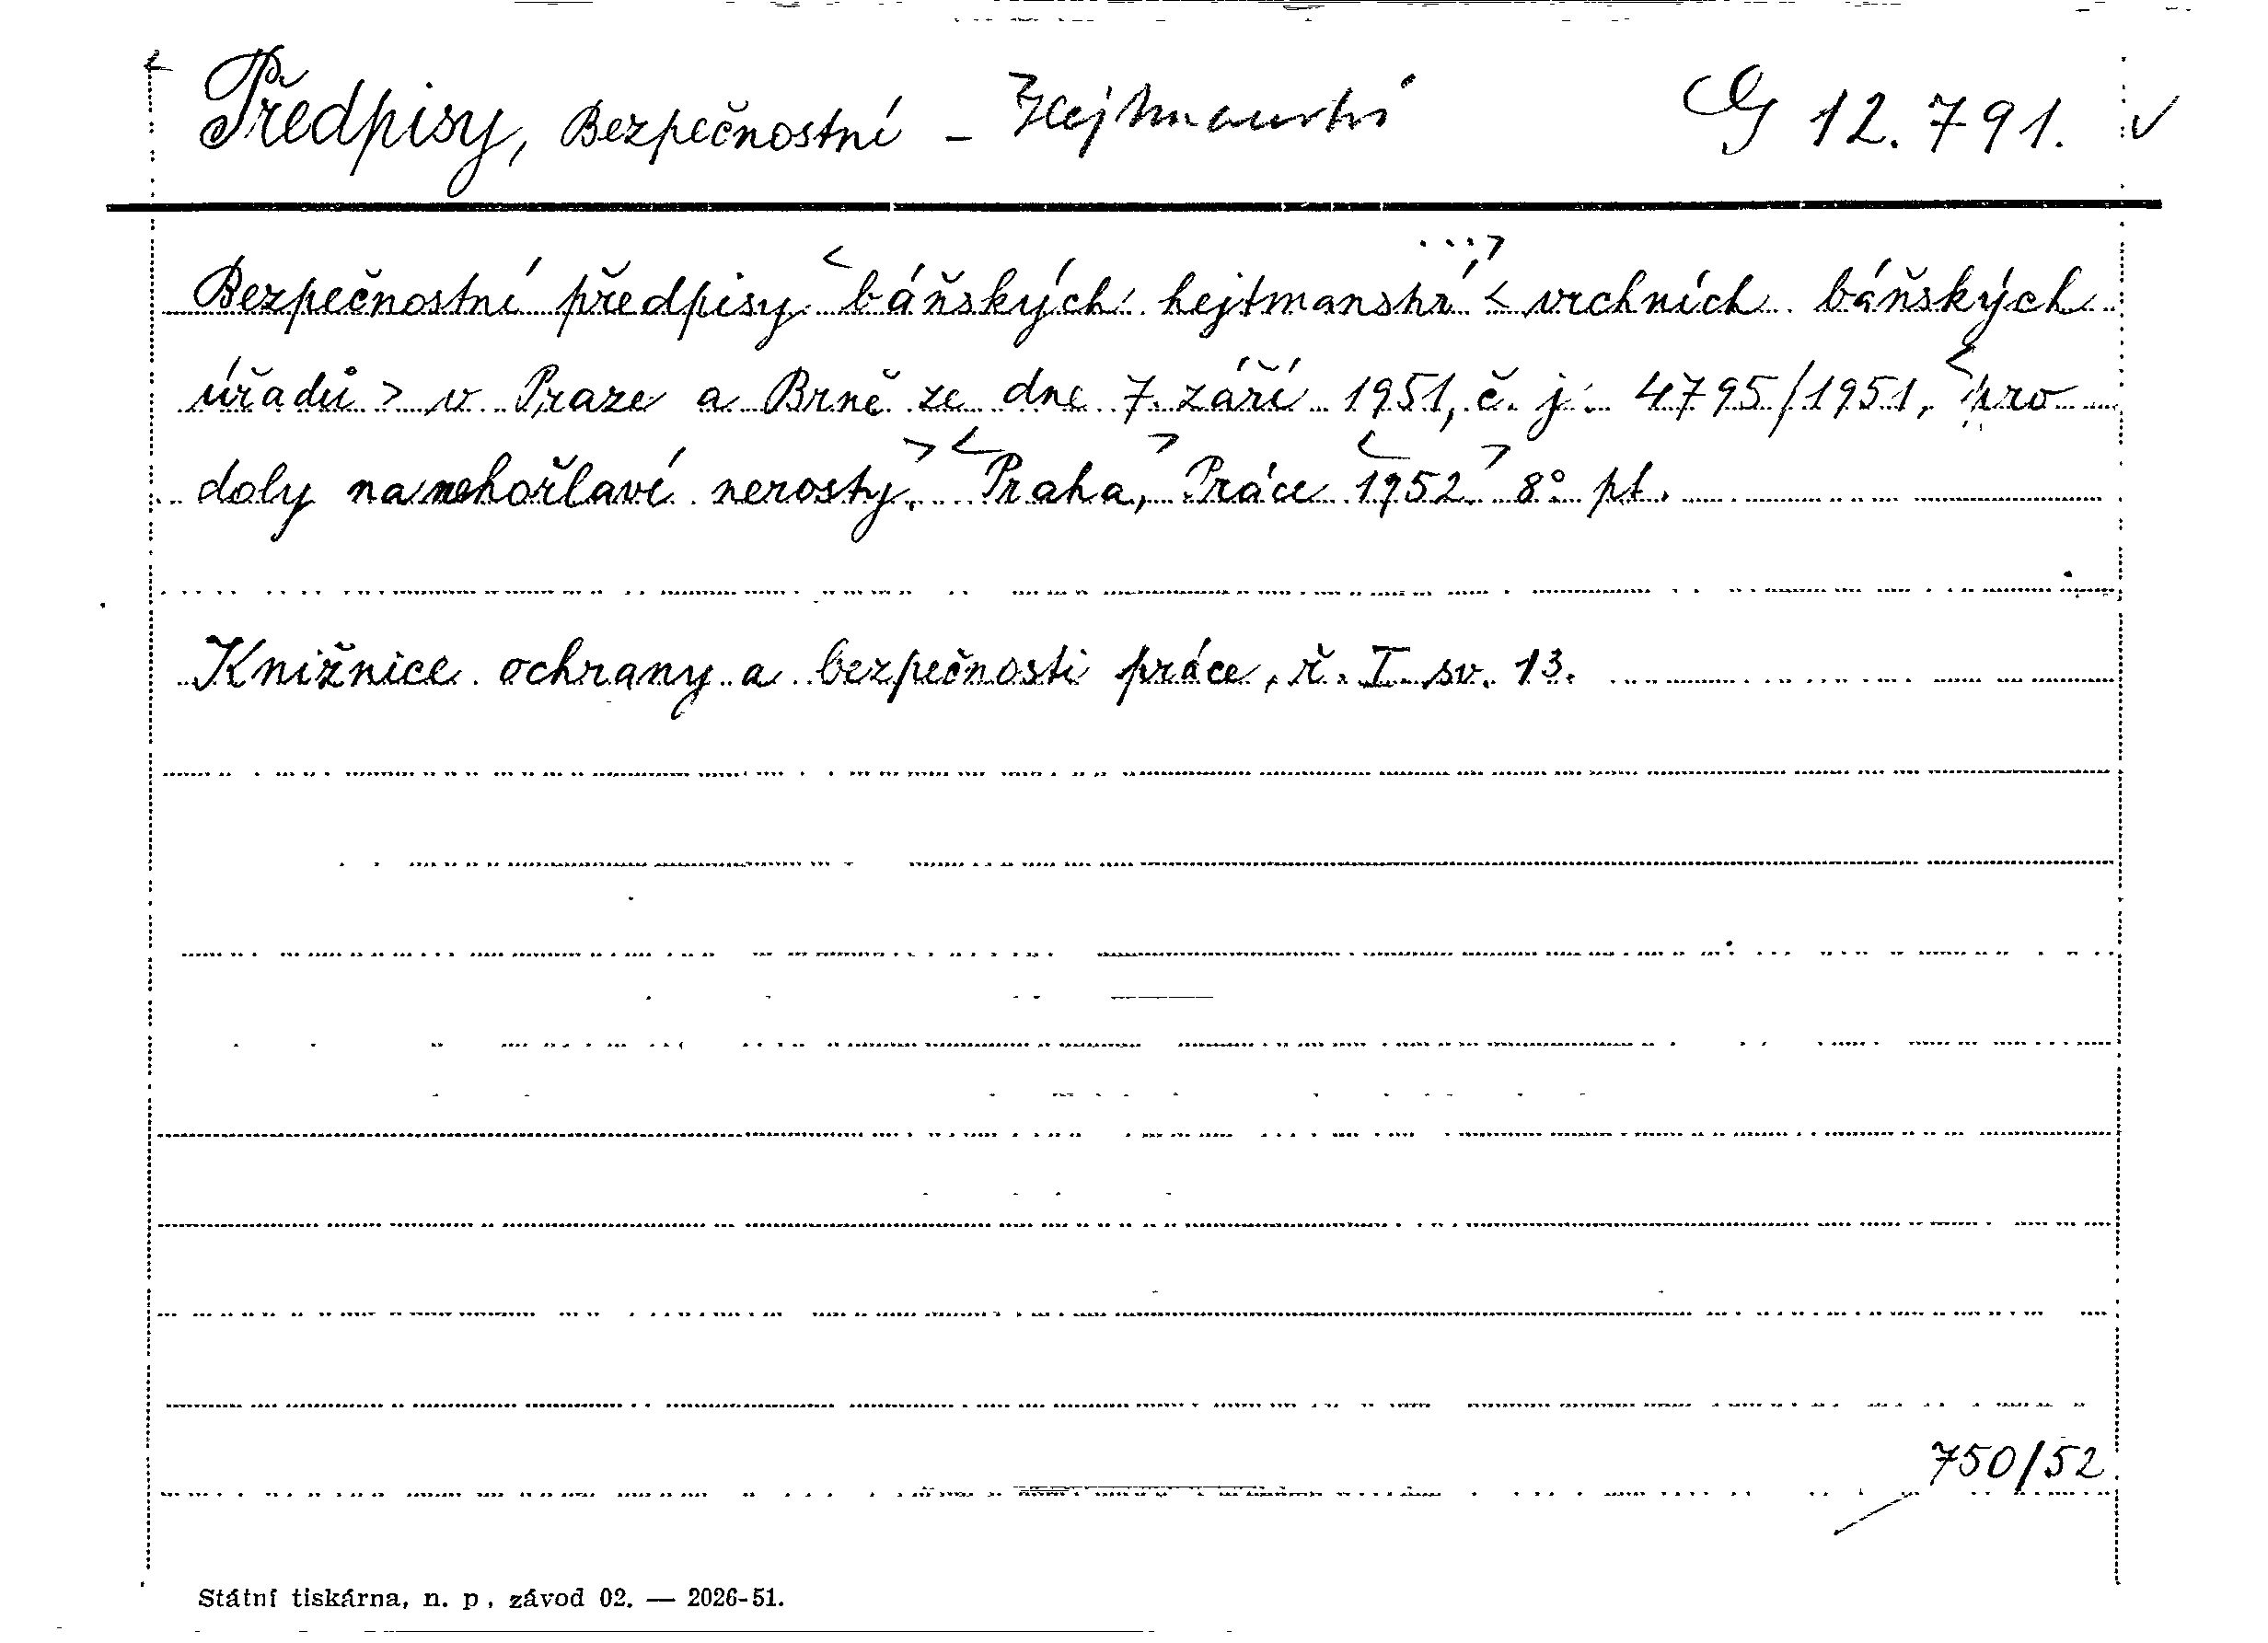 Předpisy, Bezpečnostní – Hejtmanství G 12.791. v
Bezpečnostní předpisy báňských hejtmanství < vrchních báňských
úřadů > v Praze a Brně ze dne 7. září 1951, č. j. 4795/1951, pro
doly na nehořlavé nerosty. Praha, Práce 1952. 8° pt.
Knižnice ochrany a bezpečnosti práce, ř. I sv. 13.
750/52
Státní tiskárna, n. p., závod 02. — 2026-51.